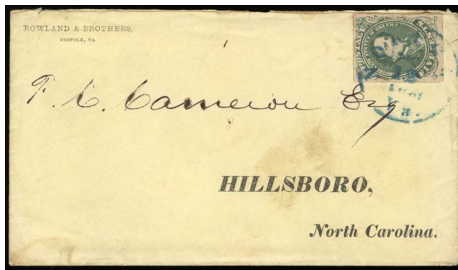 ROWLAND & BROTHERS,
NORFOLK, VA.
Cameron Esq
HILLSBORO,
North Carolina.